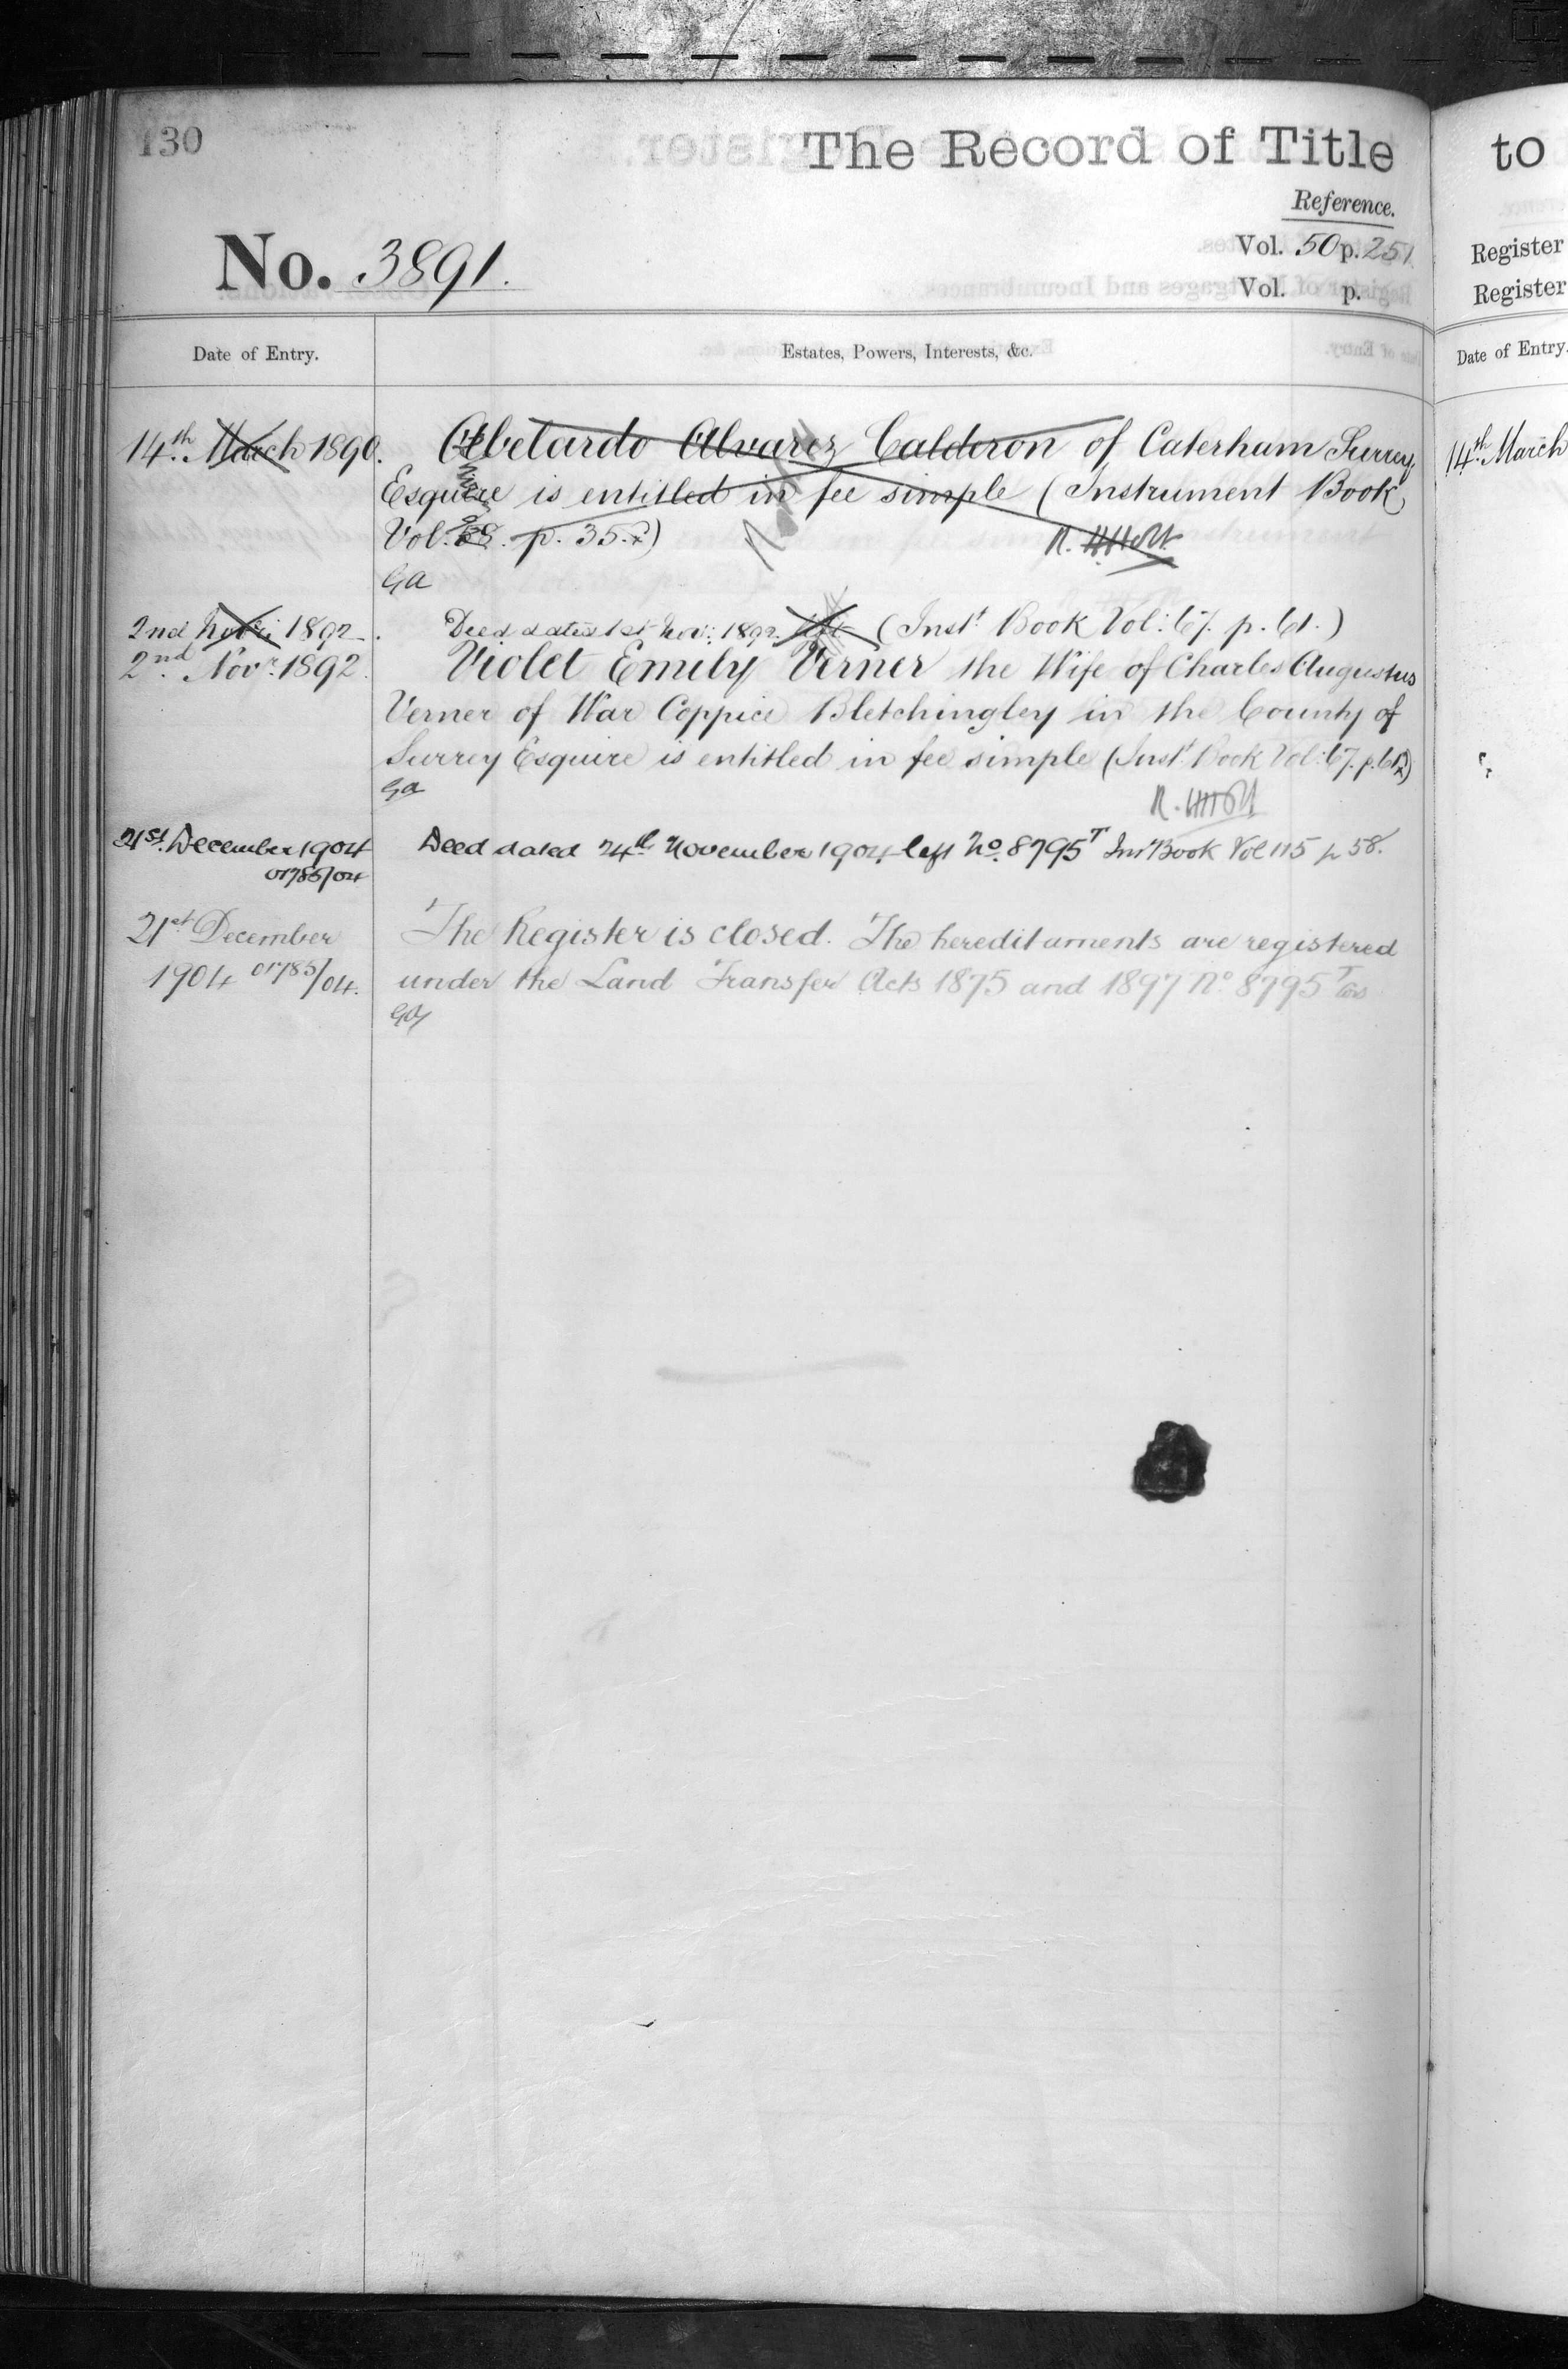 130
The Record of Title
Reference.
No. 3891.
Vol. 50 p. 251
Vol. p.
Date of Entry.
Estates, Powers, Interests, &c.
14th March 1890.
Abelardo Alvarez Calderon of Caterham Surrey
Esquire is entitled in fee simple (Instrument Book
Vol. p. 35.)
GA
2nd Novr. 1892.
Deed dated 1st Nov: 1892. left (Inst. Book Vol: 67. p. 61.)
2nd. Novr. 1892.
Violet Emily Verner the Wife of Charles Augustus
Verner of War Coppice Bletchingley in the County of
Surrey Esquire is entitled in fee simple (Inst. Book Vol: 67. p. 61)
GA
21st. December 1904
01785/04
Deed dated 24th November 1904 left No. 8795T Inst Book Vol 115 p 58.
21st December
1904 01785/04.
The Register is closed. The hereditaments are registered
under the Land Transfer Acts 1875 and 1897 No. 8795T
to
Register
Register
Date of Entry.
14th March